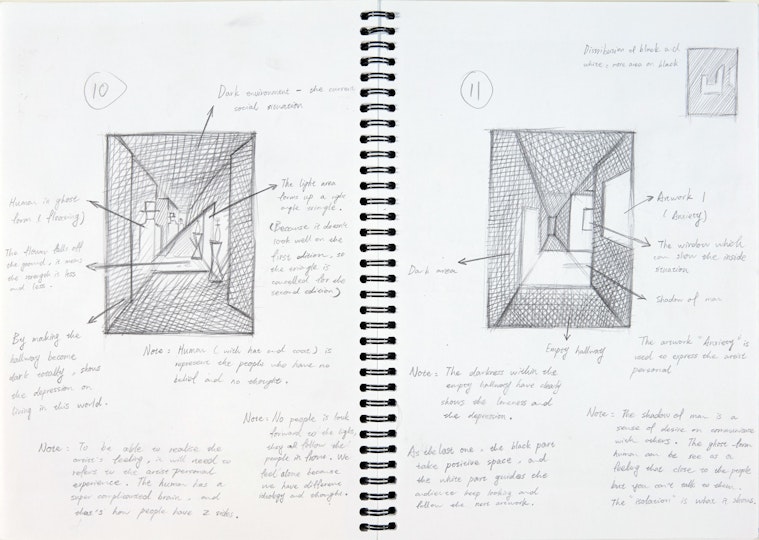 10
Dark environment - the current
social situation
Human is ghost
form (fleasing)
The flower falls off
the ground, it means
the strength is less
and less.
By making the
hallway become
dark totally, shows
the depression on
living in this world.
The light area
forms up a right
angle triangle.
(Because it doesn't
look well on the
first edition, so
the triangle is
cancelled for the
second edition)
Note: Human (with hat and coat) is
represent the people who have no
belief and no thought.
Note: No people is look
forward to the light,
they all follow the
people in focus. We
feel alone because
we have different
ideology and thought.
Note: To be able to realise the
artist's feeling, it will need to
refers to the artist personal
experience. The human has a
super complicated brain, and
that's how people have 2 sides.
11
Distribution of black and
white: more area on black
Artwork 1
(Anxiety)
The window which
can show the inside
situation
Shadow of man
Dark area
Empty hallway
The artwork "Anxiety" is
used to express the artist
personal
Note: The darkness within the
empty hallway have clearly
shows the loneness and
the depression.
As the last one, the black part
take positive space, and
the white part guides the
audience keep looking and
follow the next artwork.
Note: The shadow of man is a
sense of desire on communicate
with others. The ghost-form
human can be see as a
feeling that close to the people
but you can't talk to them.
The "isolation" is what it shows.